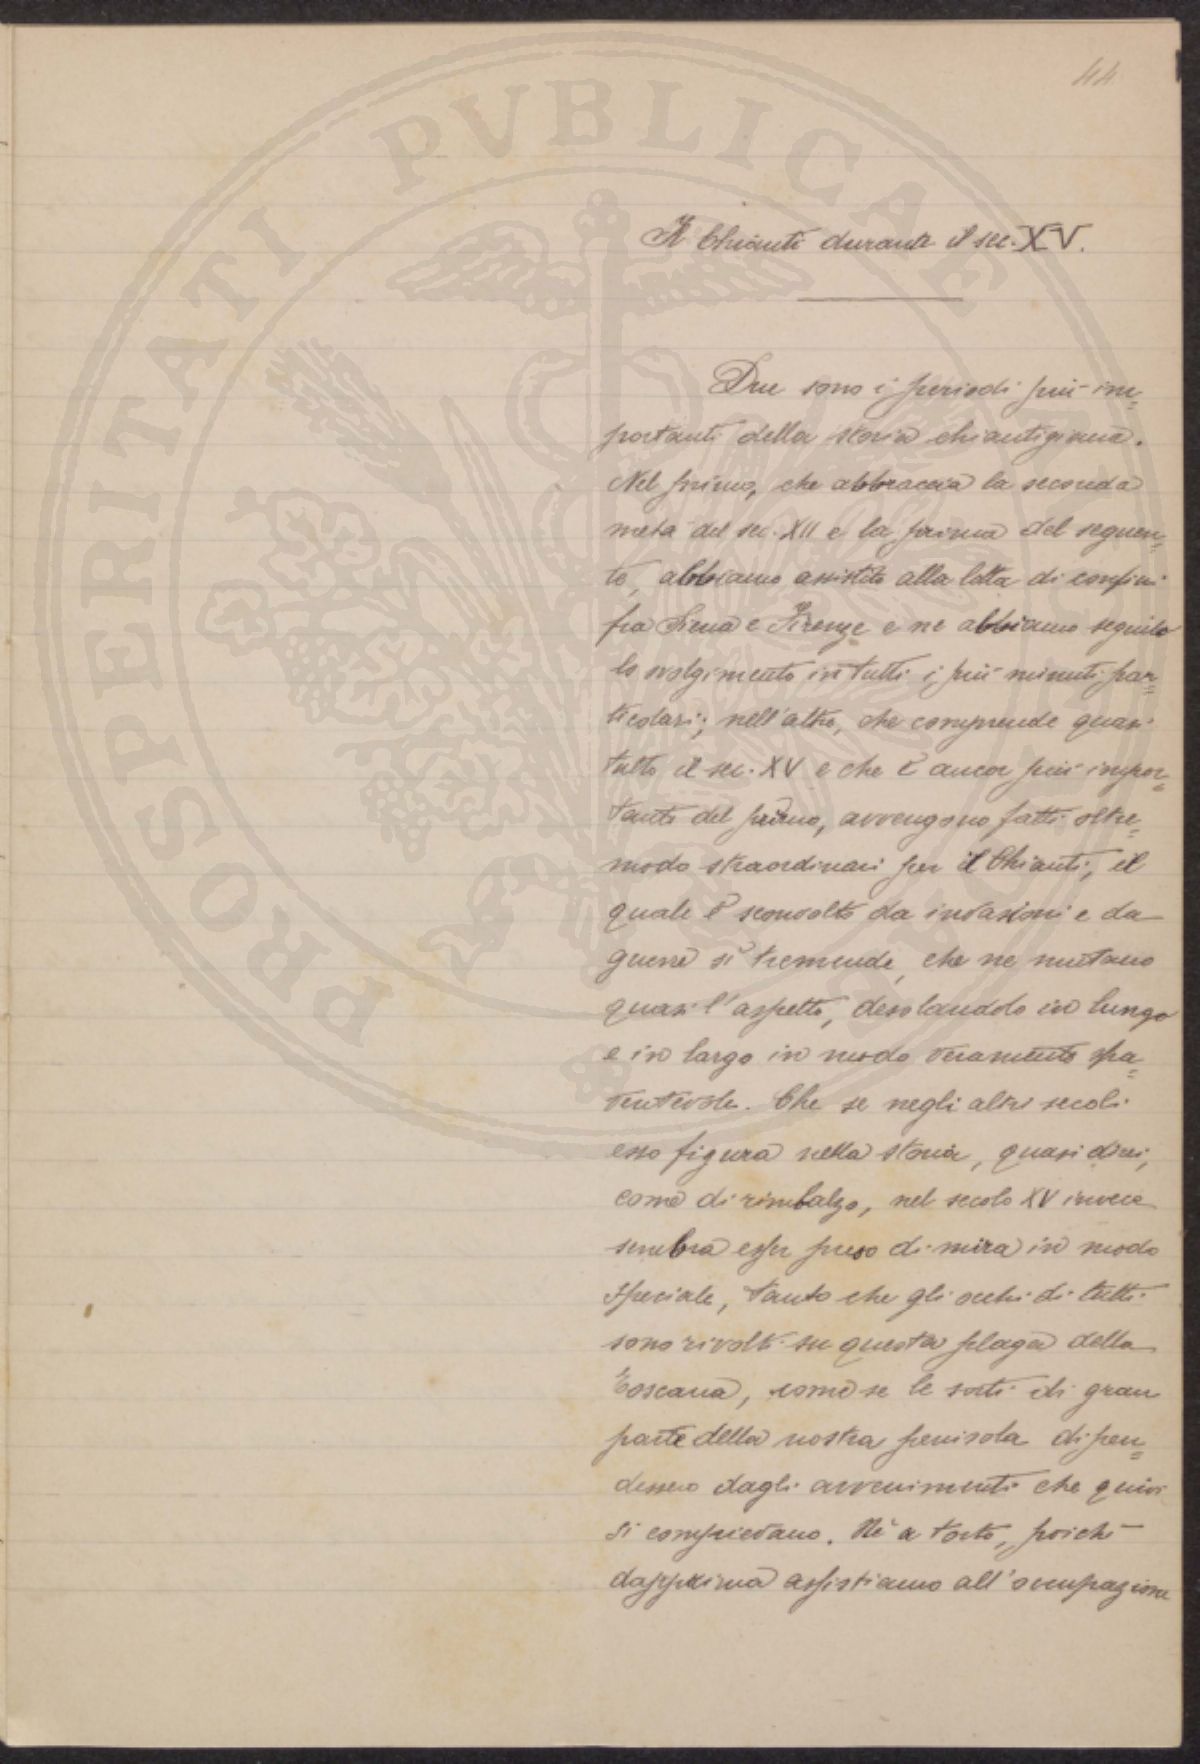 44
Il Chianti durante il sec. XV.
Due sono i periodi più im=
portanti della storia chiantigiana.
Nel primo, che abbraccia la seconda
metà del sec. XII e la prima del seguen=
te, abbiamo assistito alla lotta di confini
fra Siena e Firenze e ne abbiamo seguito
lo svolgimento in tutti i più minuti par=
ticolari; nell'altro, che comprende quasi
tutto il sec. XV e che è ancor più impor=
tante del primo, avvengono fatti oltre=
modo straordinari per il Chianti, il
quale è sconvolto da invasioni e da
guerre sì tremende, che ne mutano
quasi l'aspetto, desolandolo in lungo
e in largo in modo veramente spa=
ventevole. Che se negli altri secoli
esso figura nella storia, quasi direi,
come di rimbalzo, nel secolo XV invece
sembra esser preso di mira in modo
speciale, tanto che gli occhi di tutti
sono rivolti su questa plaga della
Toscana, come se le sorti di gran
parte della nostra penisola dipen=
dessero dagli avvenimenti che quivi
si compievano. Nè a torto, poichè
dapprima assistiamo all'occupazione
PROSPERITATI PVBLICAE